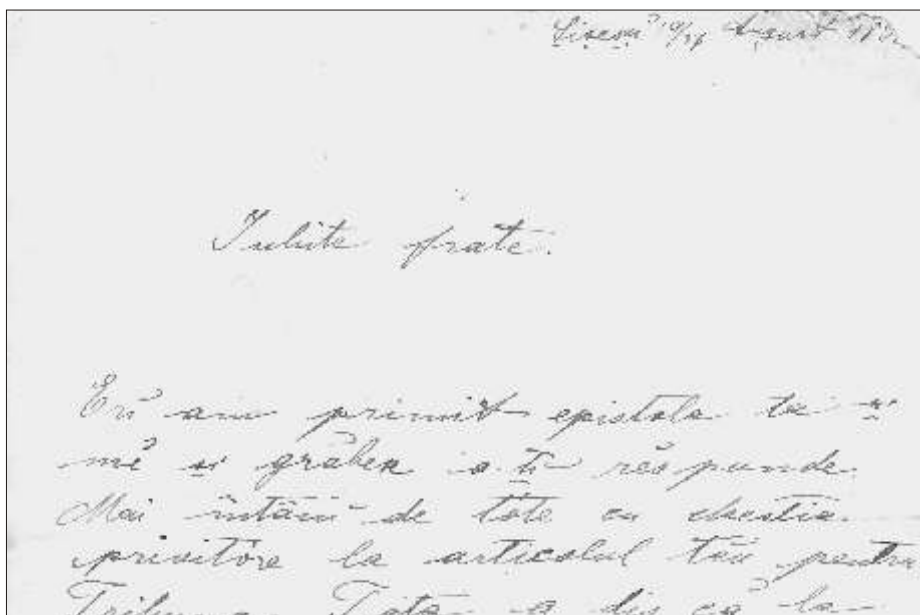 August
Iubite frate.
Eŭ am primit epistola ta și
mĕ și grăbesc a-ți rĕspunde.
Mai întâiŭ de tóte cu chestia
privitóre la articolul tĕu pentru
Tribuna. Tata a dis că la